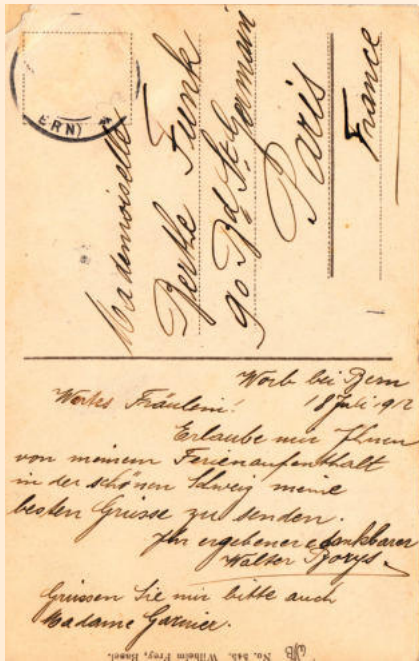 Mademoiselle
Berthe Funk
90 Bd St. Germain
Paris
France
ERN)
Worb bei Bern
18 Juli 1912
Wertes Fräulein!
Erlaube mir Ihnen
von meinem Ferienaufenthalt
in der schönen Schweiz meine
besten Grüsse zu senden.
Ihr ergebener dankbarer
Walter
Grüssen Sie mir bitte auch
Madame Garnier.
No. 345. Wilhelm Frey, Basel.